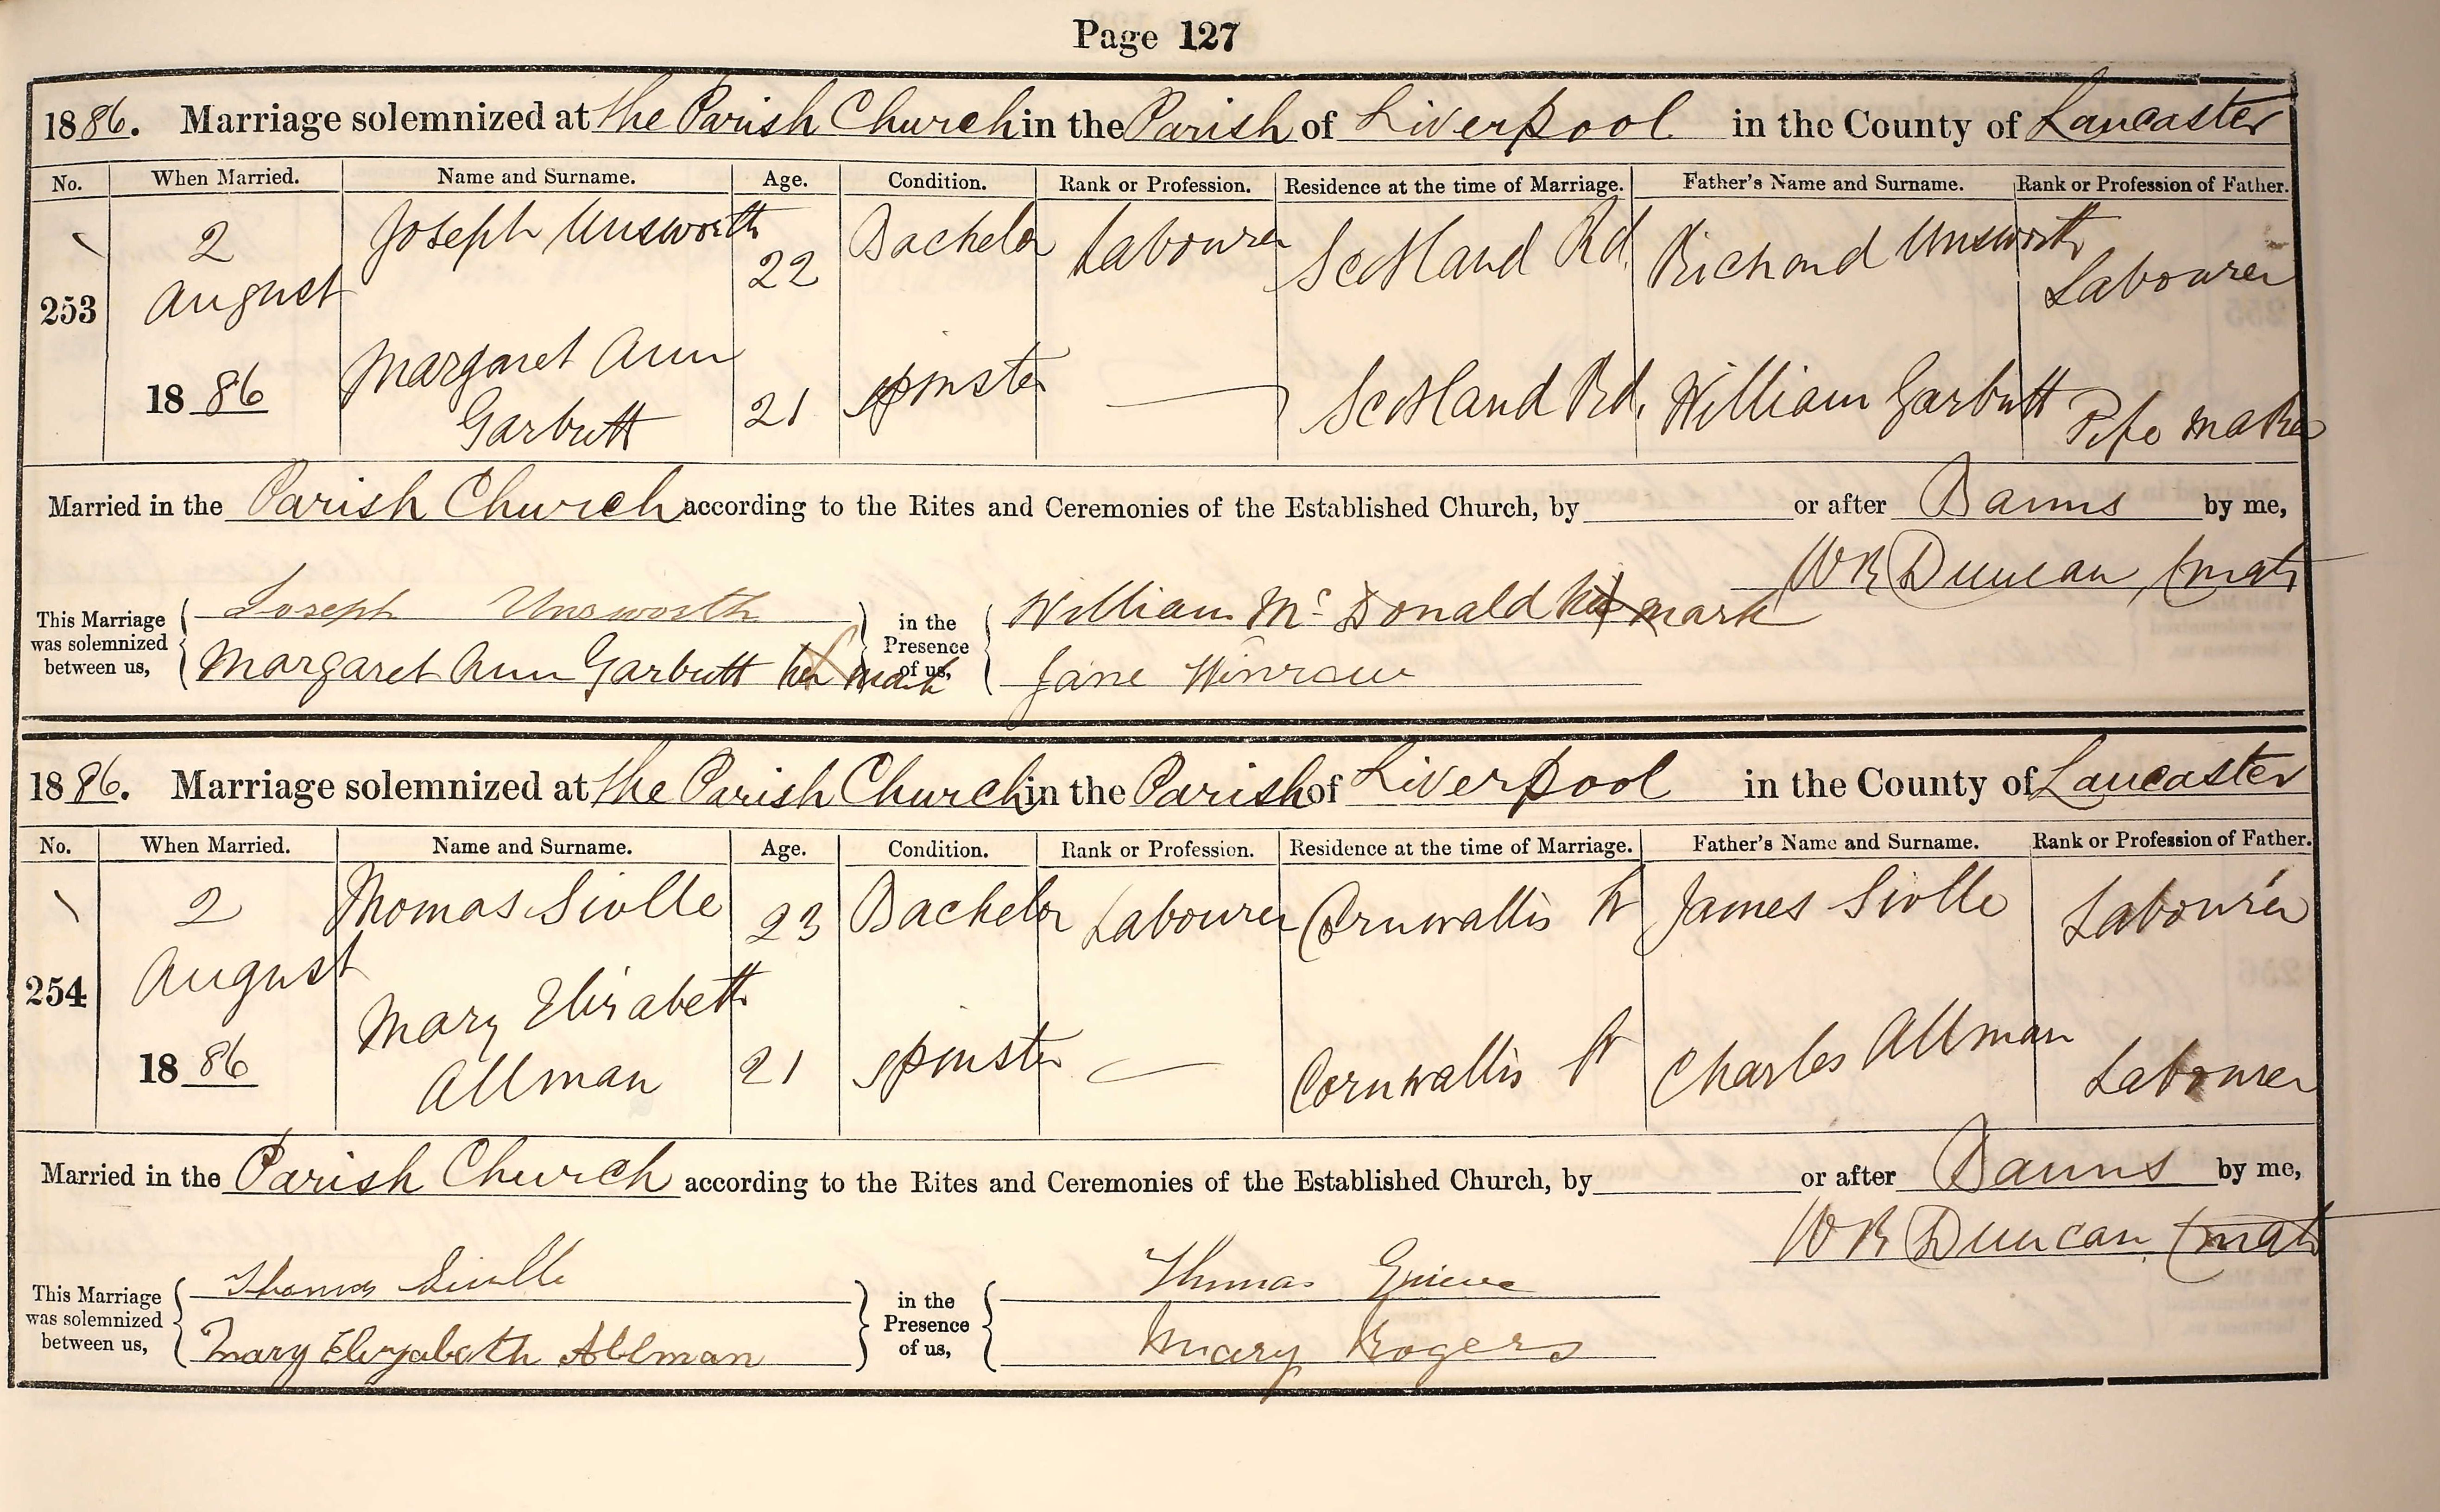 Page 127
1886. Marriage solemnized at the Parish Church in the Parish of Liverpool in the County of Lancaster
No. When Married. Name and Surname. Age. Condition. Rank or Profession. Residence at the time of Marriage. Father's Name and Surname. Rank or Profession of Father.
253 2 August 1886 Joseph Unsworth 22 Bachelor Labourer Scotland Rd. Richard Unsworth Labourer
Margaret Ann Garbutt 21 Spinster — Scotland Rd. William Garbutt Pipe maker
Married in the Parish Church according to the Rites and Ceremonies of the Established Church, by or after Banns by me,
W R Duncan,
This Marriage was solemnized between us, Joseph Unsworth in the Presence of us, William McDonald his X mark
Margaret Ann Garbutt her X mark Jane Winrow
1886. Marriage solemnized at the Parish Church in the Parish of Liverpool in the County of Lancaster
No. When Married. Name and Surname. Age. Condition. Rank or Profession. Residence at the time of Marriage. Father's Name and Surname. Rank or Profession of Father.
254 2 August 1886 Thomas 23 Bachelor Labourer Cornwallis St James Labourer
Mary Elizabeth Allman 21 Spinster — Cornwallis St Charles Allman Labourer
Married in the Parish Church according to the Rites and Ceremonies of the Established Church, by or after Banns by me,
W R Duncan,
This Marriage was solemnized between us, Thomas in the Presence of us, Thomas
Mary Elizabeth Allman Mary Rogers